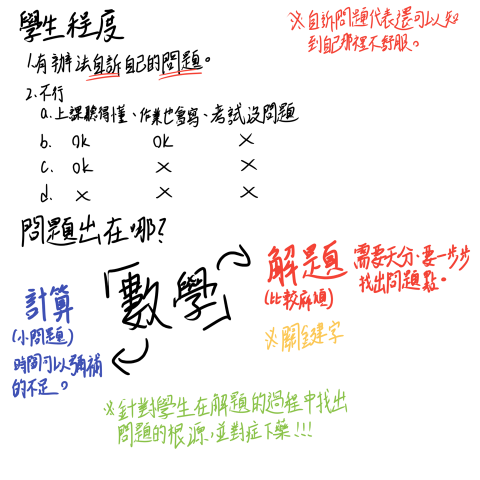 學生程度
※自訴問題代表還可以知
到自己哪裡不舒服。
1.有辦法自訴自己的問題。
2.不行
a.上課聽得懂、作業也會寫、考試沒問題
b. ok ok ×
c. ok × ×
d. × × ×
問題出在哪?
「數學」
解題
(比較麻煩)
需要天分,要一步步
找出問題點。
※關鍵字
計算
(小問題)
時間可以彌補
的不足。
※針對學生在解題的過程中找出
問題的根源,並對症下藥!!!